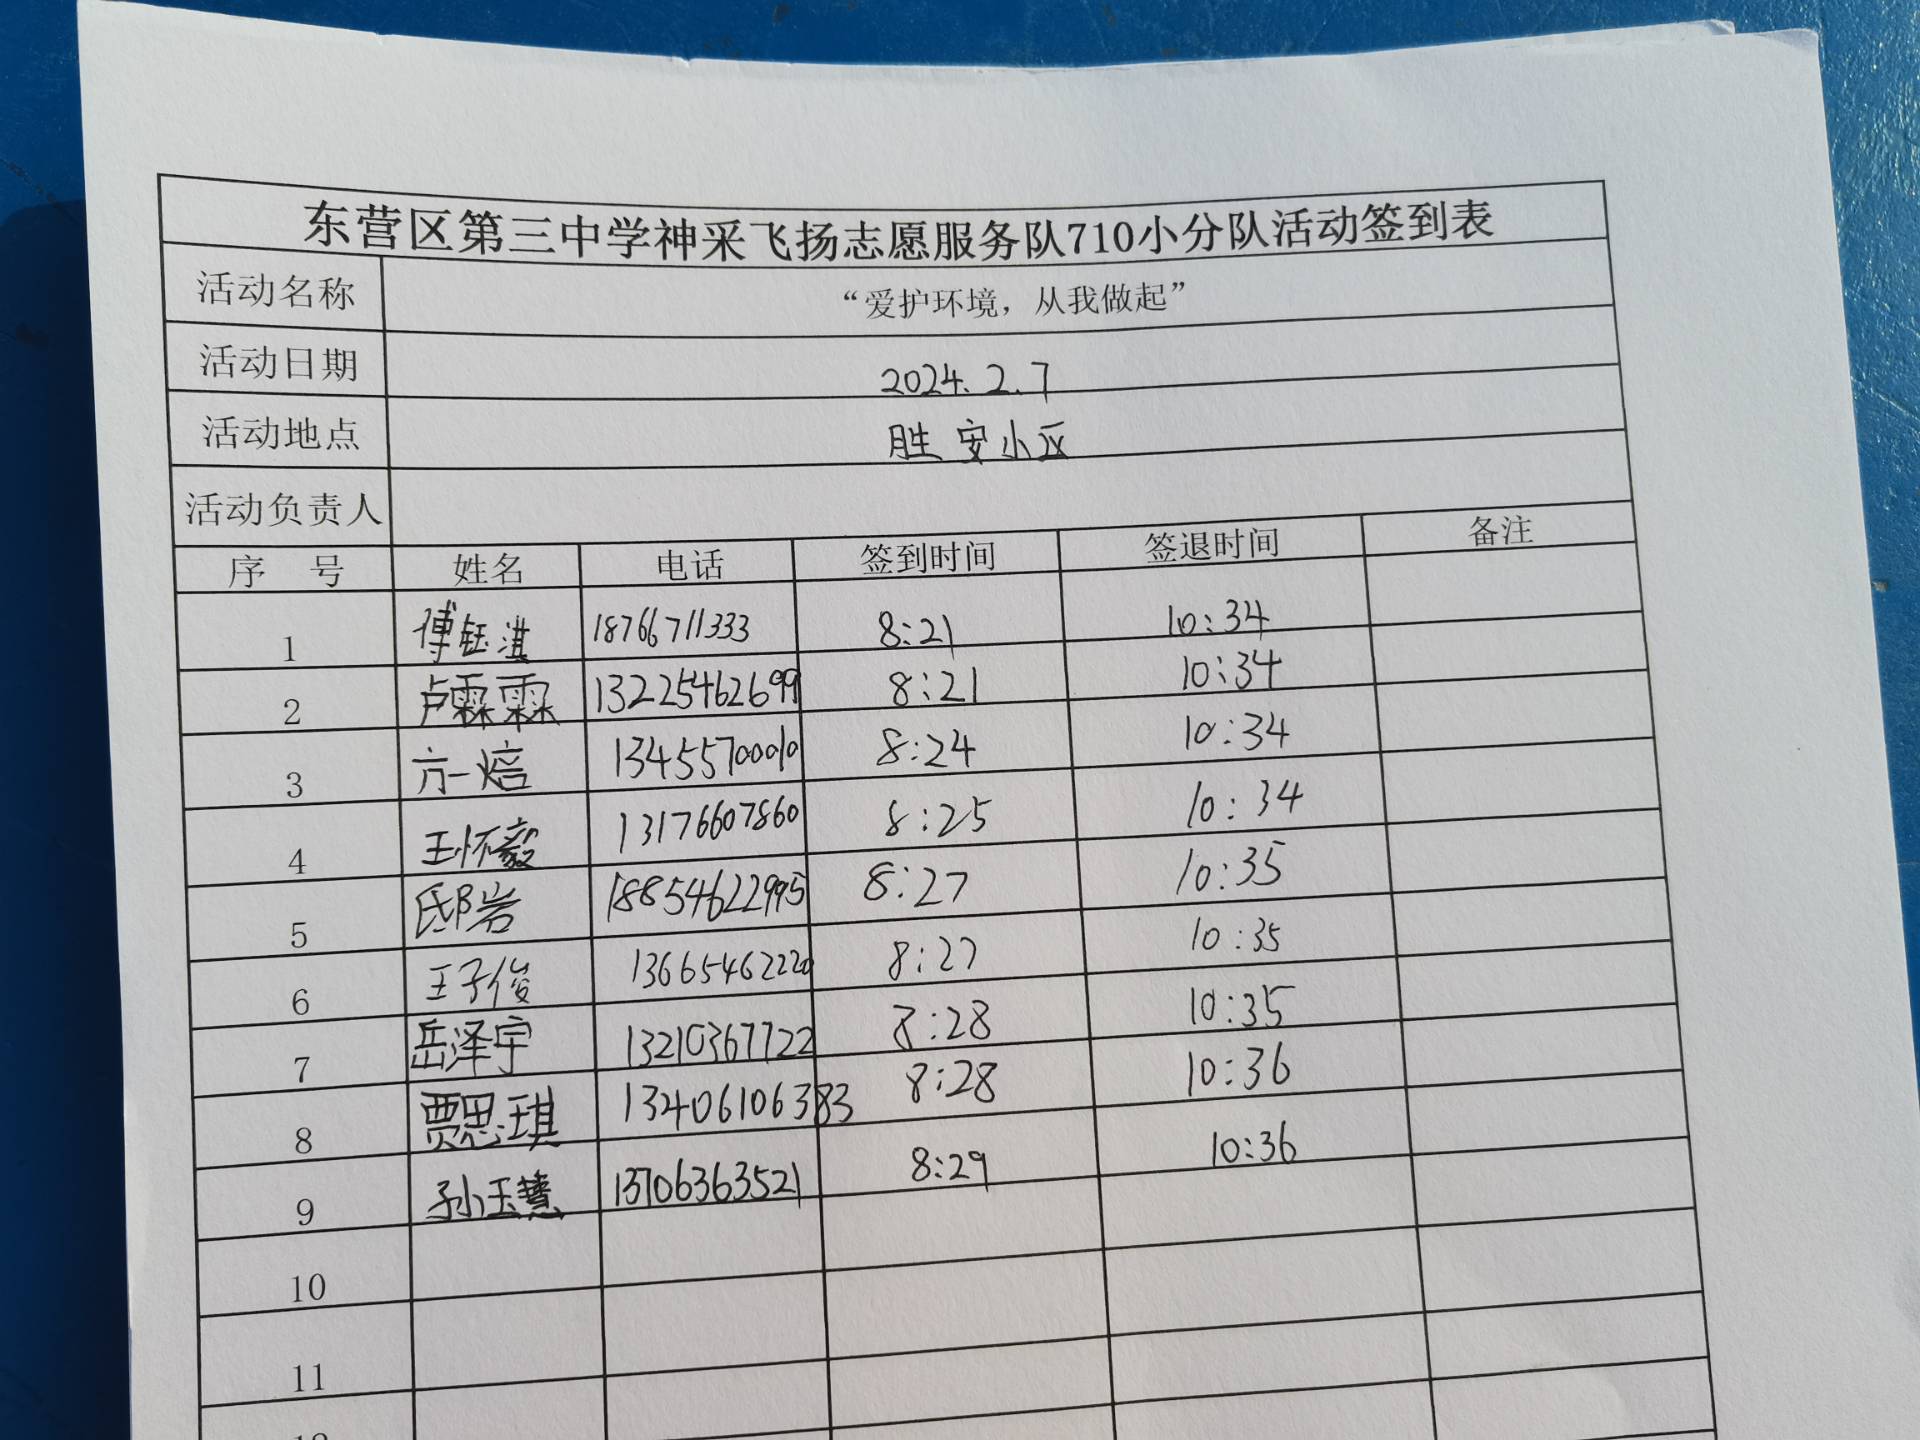 东营区第三中学神采飞扬志愿服务队710小分队活动签到表
活动名称 “爱护环境，从我做起”
活动日期 2024.2.7
活动地点 胜安小区
活动负责人
序 号 姓名 电话 签到时间 签退时间 备注
1 傅钰淇 18766711333 8:21 10:34
2 卢霖霖 13225462699 8:21 10:34
3 方一焙 13455700010 8:24 10:34
4 王怀毅 13176607860 8:25 10:34
5 邸岩 18854622995 8:27 10:35
6 王子俊 13665462220 8:27 10:35
7 岳泽宇 13210367722 8:28 10:35
8 贾思琪 13406106383 8:28 10:36
9 孙玉慧 13706363521 8:29 10:36
10
11